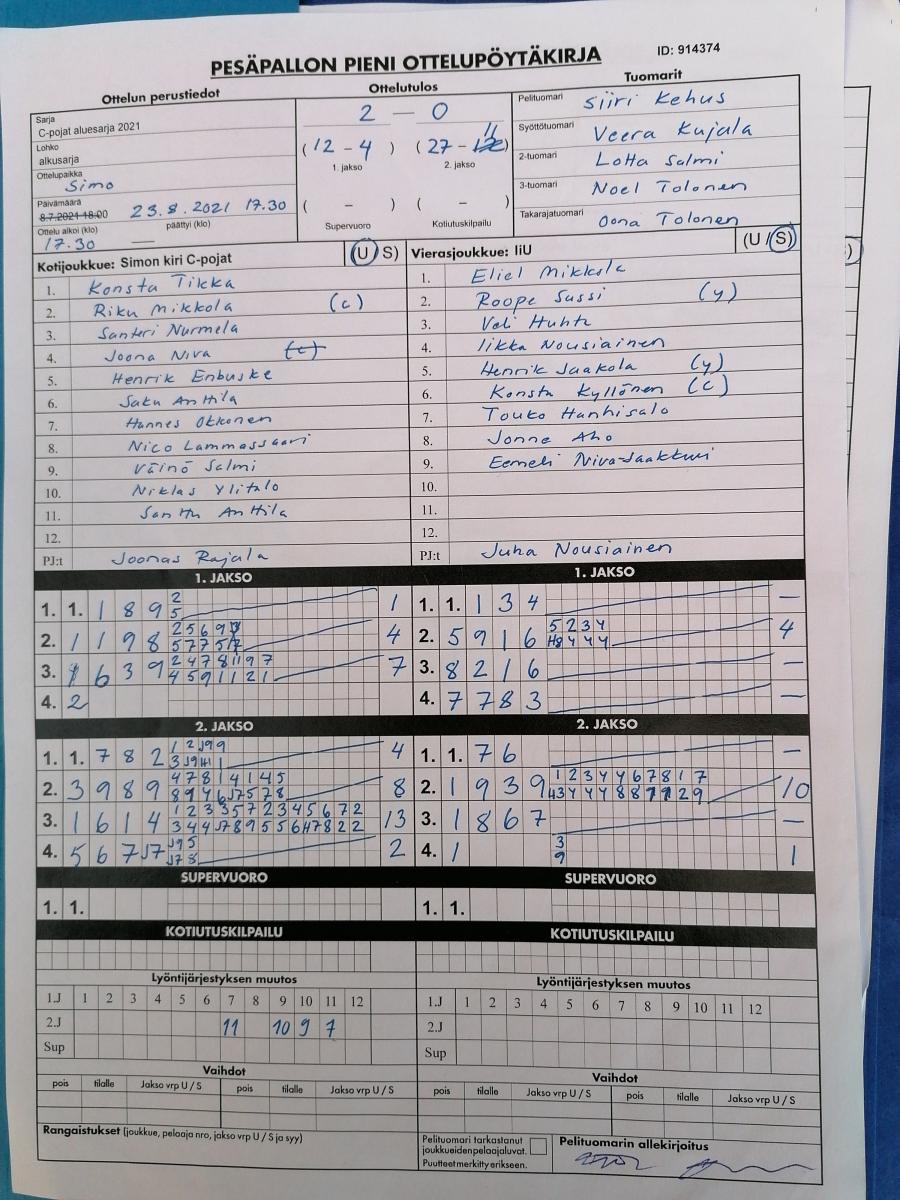 PESÄPALLON PIENI OTTELUPÖYTÄKIRJA
ID: 914374
Ottelun perustiedot
Sarja
C-pojat aluesarja 2021
Lohko
alkusarja
Ottelupaikka
Simo
Päivämäärä
8.7.2021 18:00 23.8.2021 17.30
Ottelu alkoi (klo) päättyi (klo)
17.30 —
Ottelutulos
2 — 0
(12 - 4) (27 - 11)
1. jakso 2. jakso
( - ) ( - )
Supervuoro Kotiutuskilpailu
Tuomarit
Pelituomari Siiri Kehus
Syöttötuomari Veera Kujala
2-tuomari Lotta Salmi
3-tuomari Noel Tolonen
Takarajatuomari Oona Tolonen
Kotijoukkue: Simon kiri C-pojat (U / S)
1. Konsta Tikka
2. Riku Mikkola (c)
3. Santeri Nurmela
4. Joona Niva (c)
5. Henrik Enbuske
6. Saku Anttila
7. Hannes Okkonen
8. Nico Lammassaari
9. Väinö Salmi
10. Niklas Ylitalo
11. Santtu Anttila
12.
PJ:t Joonas Rajala
Vierasjoukkue: IiU (U / S)
1. Eliel Mikkola
2. Roope Sassi (y)
3. Veli Huhta
4. Iikka Nousiainen
5. Henrik Jaakola (y)
6. Konsta Kyllönen (c)
7. Touko Hanhisalo
8. Jonne Aho
9. Eemeli
10.
11.
12.
PJ:t Juha Nousiainen
1. JAKSO
1. 1. 1 8 9 2 1
5
2. 1 1 9 8 4
3. 6 3 9 2 4 7 8 11 9 7 7
4 5 9 1 1 2 1
4. 2
1. JAKSO
1. 1. 1 3 4 —
2. 5 9 1 6 5 2 3 4 4
4 4 4
3. 8 2 1 6 —
4. 7 7 8 3 —
2. JAKSO
1. 1. 7 8 2 4
2. 3 9 8 9 4 7 8 1 4 1 4 5 8
3. 1 6 1 4 1 2 3 3 5 7 2 3 4 5 6 7 2 13
4. 5 6 7 2
2. JAKSO
1. 1. 7 6 —
2. 1 9 3 9 1 2 3 4 4 6 7 8 1 7 10
3. 1 8 6 7 —
4. 1 3 1
9
SUPERVUORO
1. 1.
SUPERVUORO
1. 1.
KOTIUTUSKILPAILU
KOTIUTUSKILPAILU
Lyöntijärjestyksen muutos
1.J 1 2 3 4 5 6 7 8 9 10 11 12
2.J 11 10 9 7
Sup
Lyöntijärjestyksen muutos
1.J 1 2 3 4 5 6 7 8 9 10 11 12
2.J
Sup
Vaihdot
pois tilalle Jakso vrp U / S pois tilalle Jakso vrp U / S
Vaihdot
pois tilalle Jakso vrp U / S pois tilalle Jakso vrp U / S
Rangaistukset (joukkue, pelaaja nro, jakso vrp U / S ja syy)
Pelituomari tarkastanut
joukkueiden pelaajaluvat.
Puutteet merkitty erikseen.
Pelituomarin allekirjoitus